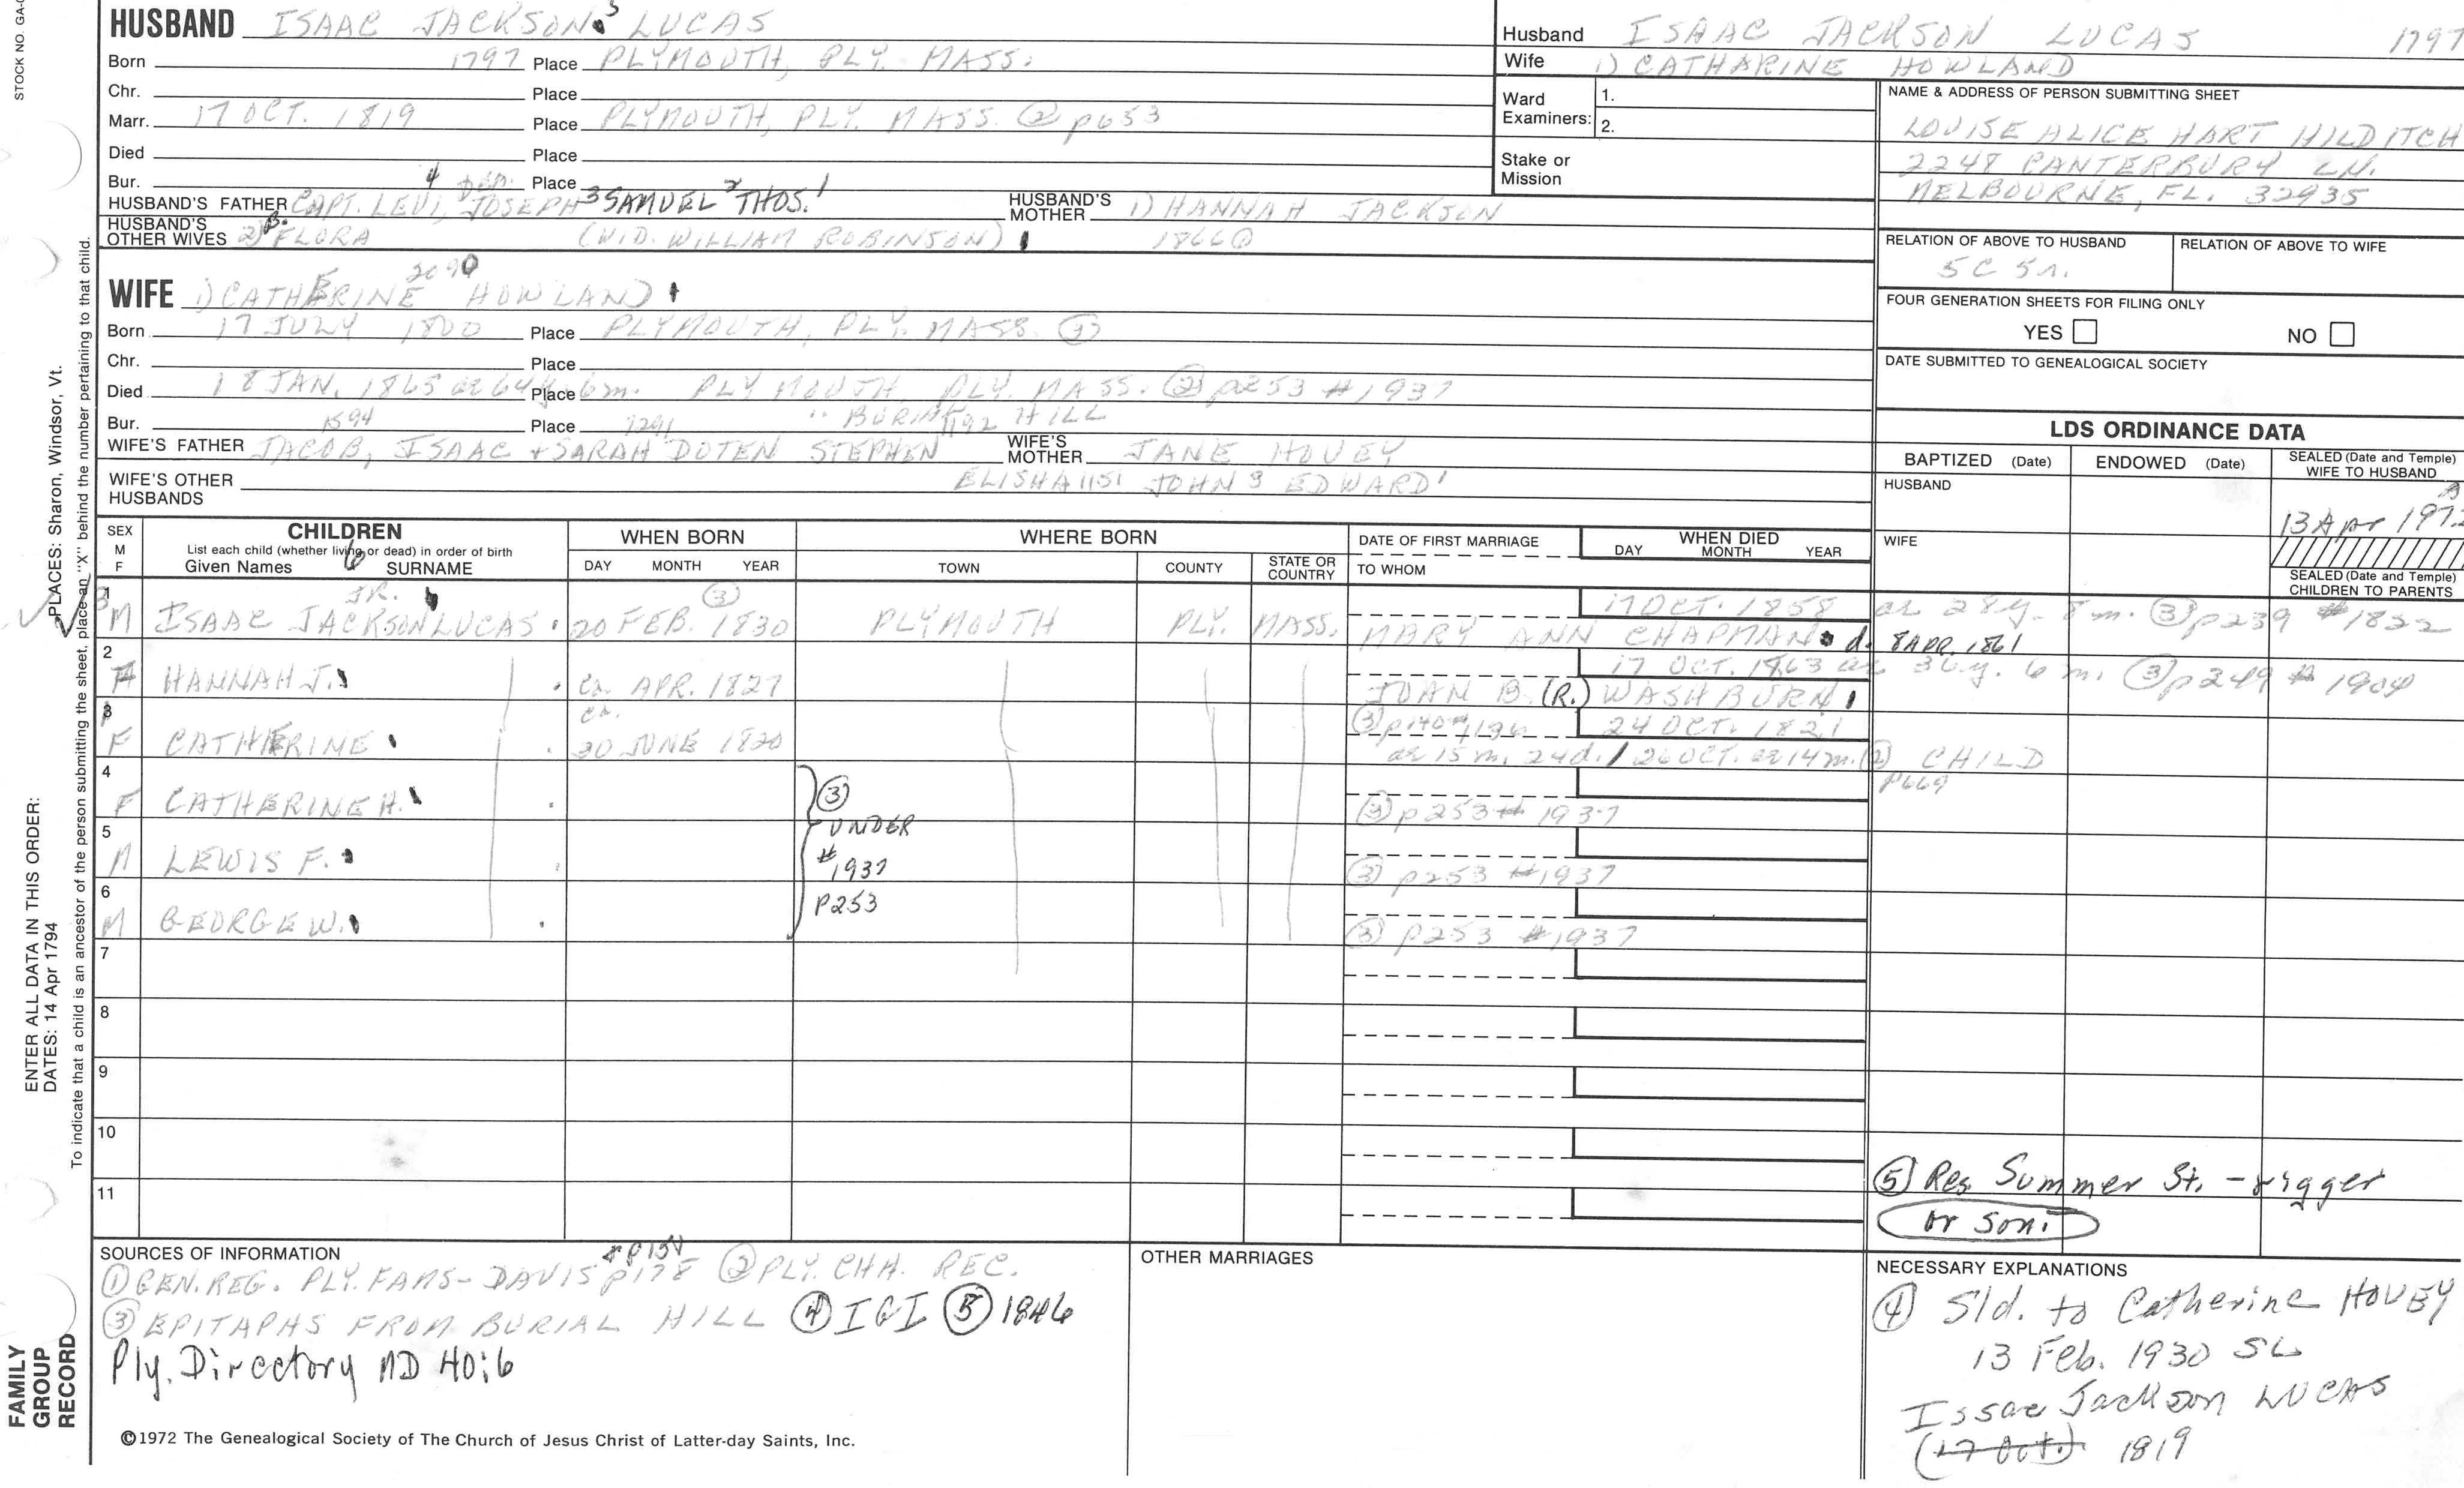 STOCK NO. GA-
HUSBAND ISAAC JACKSON 5 LUCAS
Born 1797 Place PLYMOUTH, PLY. MASS.
Chr. Place
Marr. 17 OCT. 1819 Place PLYMOUTH, PLY. MASS. ② p653
Died Place
Bur. Place
HUSBAND'S FATHER CAPT. LEVI, 4 JOSEPH 3 SAMUEL 2 THOS. 1 HUSBAND'S MOTHER 1) HANNAH JACKSON
HUSBAND'S OTHER WIVES 2) FLORA B. (WID. WILLIAM ROBINSON)
Husband ISAAC JACKSON LUCAS 1797
Wife 1) CATHARINE HOWLAND
Ward Examiners: 1.
2.
Stake or Mission
NAME & ADDRESS OF PERSON SUBMITTING SHEET
LOUISE ALICE HART HILDITCH
2248 CANTERBURY LN.
MELBOURNE, FL. 32935
RELATION OF ABOVE TO HUSBAND
5C 5r.
RELATION OF ABOVE TO WIFE
FOUR GENERATION SHEETS FOR FILING ONLY
YES NO
DATE SUBMITTED TO GENEALOGICAL SOCIETY
WIFE 1) CATHERINE HOWLAND
Born 17 JULY 1800 Place PLYMOUTH, PLY. MASS.
Chr. Place
Died 18 JAN. 1865 ae 64y. 6m. Place PLYMOUTH, PLY. MASS. p253 #1937
Bur. Place " BURIAL HILL
1594 1291 1192
WIFE'S FATHER JACOB, ISAAC + SARAH DOTEN STEPHEN WIFE'S MOTHER JANE HOVEY
WIFE'S OTHER HUSBANDS ELISHA 1151 JOHN 3 EDWARD 1
LDS ORDINANCE DATA
BAPTIZED (Date) ENDOWED (Date) SEALED (Date and Temple) WIFE TO HUSBAND
HUSBAND
13 Apr 197
WIFE
SEALED (Date and Temple) CHILDREN TO PARENTS
SEX M F
CHILDREN
List each child (whether living or dead) in order of birth
Given Names 6 SURNAME
WHEN BORN
DAY MONTH YEAR
WHERE BORN
TOWN COUNTY STATE OR COUNTRY
DATE OF FIRST MARRIAGE
TO WHOM
WHEN DIED
DAY MONTH YEAR
1 M ISAAC JACKSON LUCAS JR. 20 FEB. 1830 ③ PLYMOUTH PLY. MASS. 17 OCT. 1858 ae 28y. 8m. ③ p239 #1822
MARY ANN CHAPMAN d. 8 APR. 1861
2 F HANNAH J. ca APR. 1827 17 OCT. 1863 ae 36y. 6m. ③ p249 # 1904
JOHN B. (R.) WASHBURN
3 F CATHERINE ca. 30 JUNE 1820 24 OCT. 1821
ae 15 m. 24d. / 26 OCT. ae 14m. ② CHILD
p669
4 F CATHERINE H. ③ p253 # 1937
5 M LEWIS F. ③ p253 #1937
6 M GEORGE W. ③ p253 #1937
③
UNDER
#
1937
P253
7
8
9
10
11
⑤ Res Summer St. - rigger
or son.
SOURCES OF INFORMATION
① GEN. REG. PLY. FAMS - DAVIS p178 ② PLY. CHH. REC.
③ EPITAPHS FROM BURIAL HILL ④ IGI ⑤ 1846
Ply. Directory MD 40:6
OTHER MARRIAGES
NECESSARY EXPLANATIONS
④ Sld. to Catherine HOVEY
13 Feb. 1930 SL
Issac Jackson LUCAS
(17 Oct.) 1819
©1972 The Genealogical Society of The Church of Jesus Christ of Latter-day Saints, Inc.
FAMILY
GROUP
RECORD
ENTER ALL DATA IN THIS ORDER:
DATES: 14 Apr 1794
PLACES: Sharon, Windsor, Vt.
To indicate that a child is an ancestor of the person submitting the sheet, place an "X" behind the number pertaining to that child.